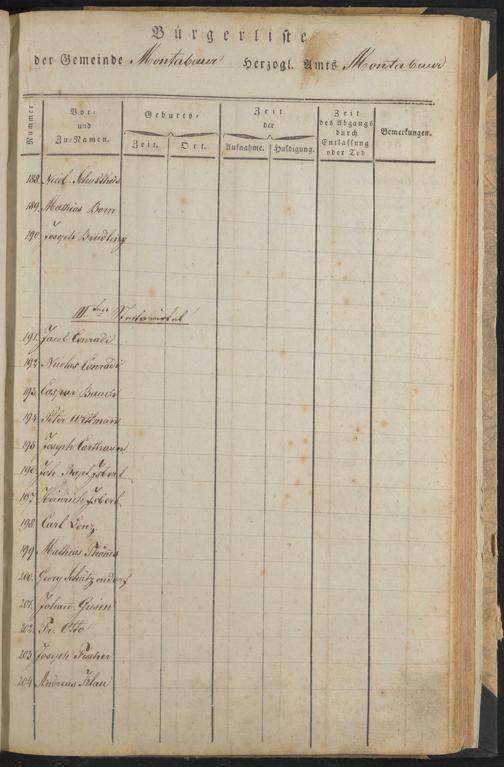 Bürgerliste
der Gemeinde Montabaur Herzogl. Amts Montabaur
Nummer
Vor-
und
Zu-Namen.
Geburts-
Zeit.
Ort.
Zeit
der
Aufnahme.
Huldigung.
Zeit
des Abgangs
durch
Entlassung
oder Tod
Bemerkungen.
188. Nicol.
189. Mathias Born
190. Joseph
III.
191. Jacob Conradi
192. Nicolas Conradi
193. Caspar Bauch
194. Peter Wittmann
195. Joseph
196. Joh. Bapt. Isbert
197. Heinrich Isbert
198. Carl Lenz
199. Mathias Thönes
200. Georg Schützendorf
201. Johann Giesen
202. Fr. Otto
203. Joseph Fischer
204. Andreas Klau